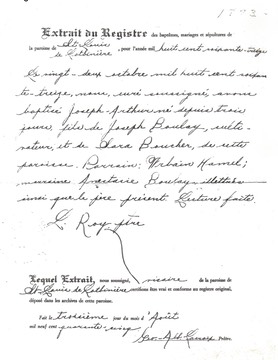 1873
Extrait du Registre des baptêmes, mariages et sépultures de
la paroisse de St-Louis de Lotbinière, pour l'année mil huit cent soixante-treize
Ce vingt-deux octobre mil huit cent soixan-
te-treize, nous, curé soussigné, avons
baptisé Joseph-Arthur né depuis trois
jours, fils de Joseph Boulay, culti-
vateur, et de Clara Boucher, de cette
paroisse. Parrain: Urbain Hamel;
marraine Anastasie Boulay
ainsi que le père présent. Lecture faite.
L. Roy ptre
Lequel Extrait, nous soussigné, vicaire de la paroisse de
St-Louis de Lotbinière certifions être vrai et conforme au registre original,
déposé dans les archives de cette paroisse.
Fait le troisième jour du mois d'Août
mil neuf cent quarante-cinq
Prêtre